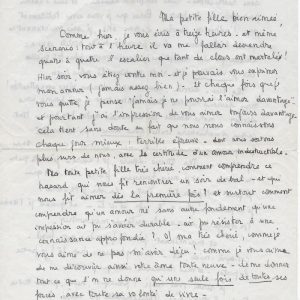 Ma petite fille bien aimée,
Comme hier, je vous écris à treize heures. et même
scénario : tout à l'heure il va me falloir descendre
quatre à quatre l'escalier que tant de clous ont martelé !
Hier soir vous étiez contre moi. et je pouvais vous exprimer
mon amour (jamais assez bien). Et chaque fois que je
vous quitte je pense "jamais je ne pourrai l'aimer davantage".
et pourtant j'ai l'impression de vous aimer toujours davantage.
cela tient sans doute au fait que nous nous connaissons
chaque jour mieux : terrible épreuve. dont nous sortons
plus surs de nous. avec la certitude d'un amour indestructible.
Ma toute petite fille très chérie, comment comprendre ce
hasard qui nous fit rencontrer un soir de bal - et qui
nous fit aimer dès la première fois ? et surtout comment
comprendre qu'un amour né sans autre fondement qu'une
impression ait pu s'avérer durable. ait pu résister à une
connaissance approfondie ? O! ma très chérie, comme je
vous aime de ne pas m'avoir déçu. comme je vous aime
de me découvrir ainsi votre âme toute neuve. de me donner
tout ce que l'on ne donne qu'une seule fois de toutes ses
forces, avec toute sa volonté de vivre -